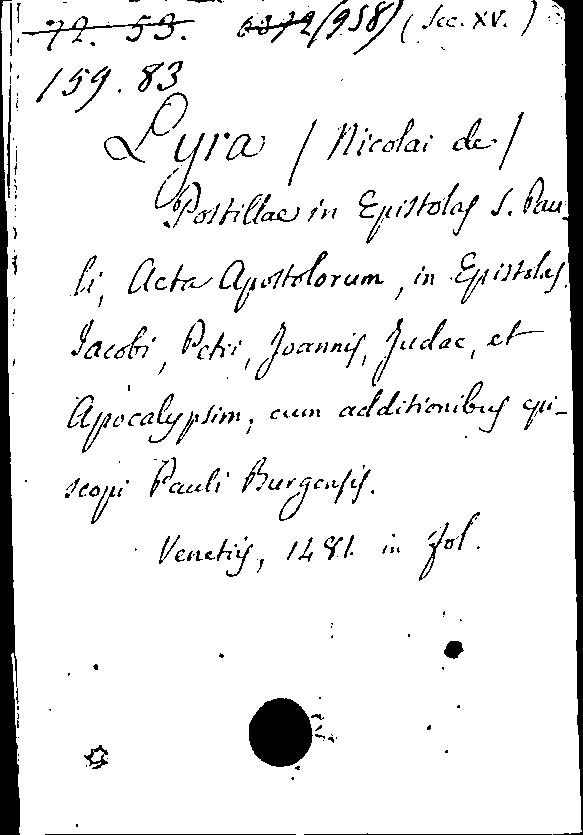 72. 53. 6372 (958) (Sec. XV.)
159. 83
Lyra / Nicolai de /
Postillae in Epistolas S. Pau-
li, Acta Apostolorum, in Epistolas
Jacobi, Petri, Joannis, Judae, et
Apocalypsim, cum additionibus epi-
scopi Pauli Burgensis.
Venetiis, 1481. in fol.